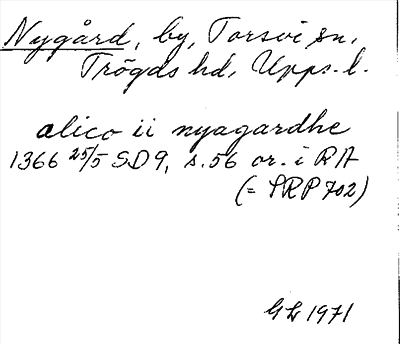 Nygård, by, Torsvi sn,
Trögds hd, Upps. l.
alico ii nyagardhe
1366 25/5 SD 9, s. 56 or. i RA
(= SRP 702)
GL 1971